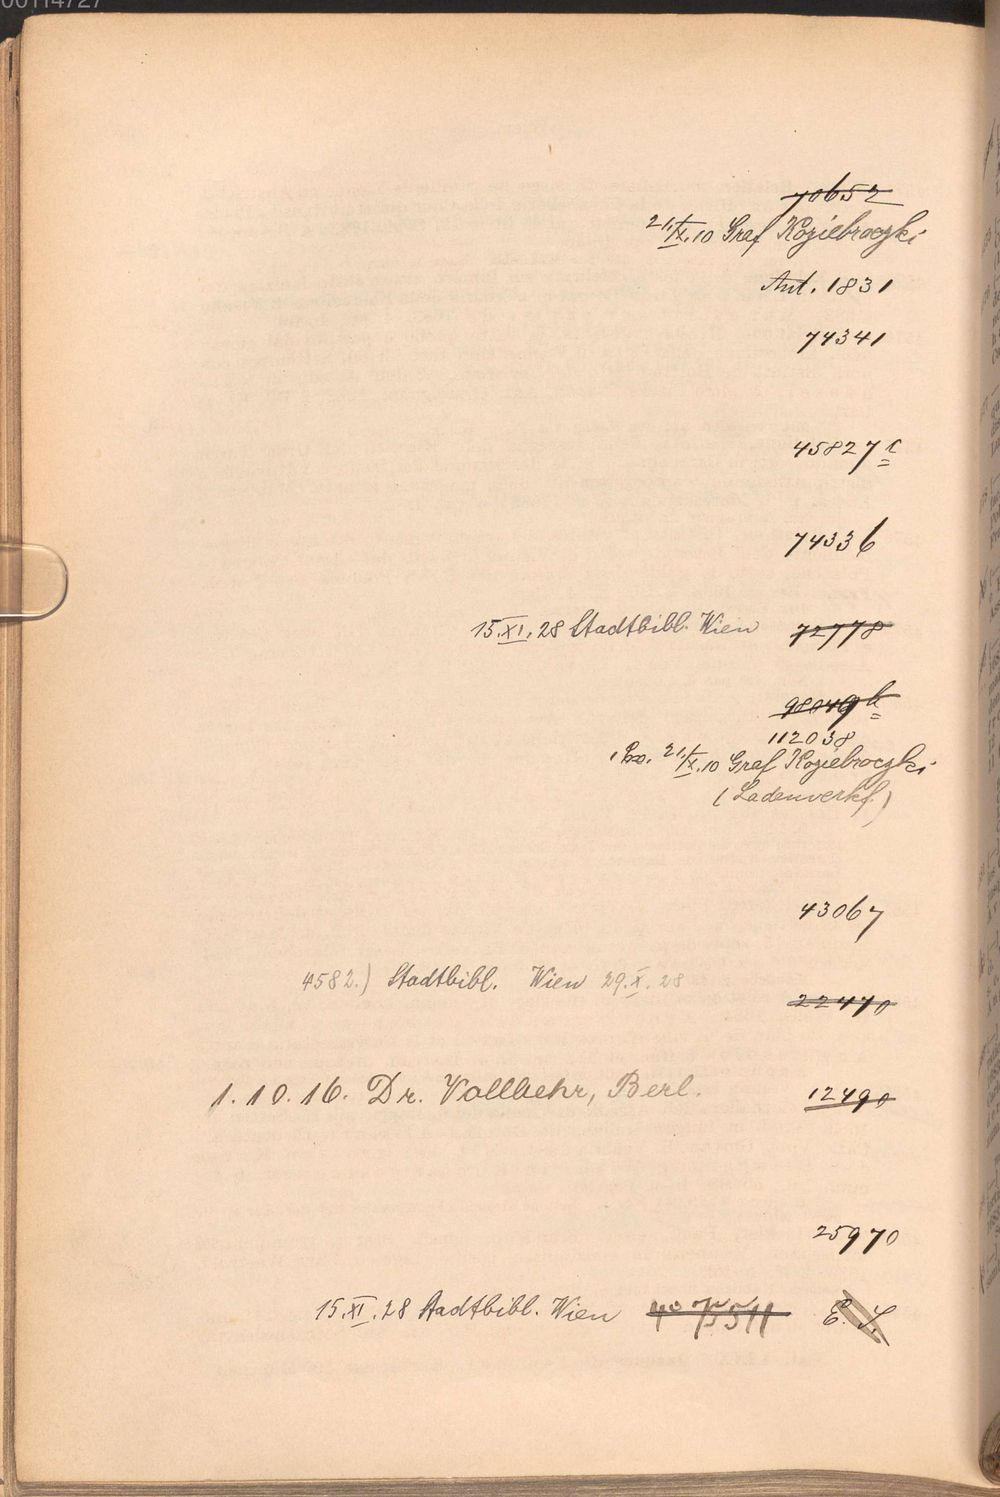 00114727
70652
21./IX.10 Graf Koziebroczki
Ant. 1831
74341
45827 c
74336
15.XI.28 Stadtbibl. Wien 72778
98049 b
112038
1 Ex. 21./IX.10 Graf Koziebroczki
(Ladenverkf.)
43067
4582.) Stadtbibl. Wien 29.X.28
22470
1.10.16. Dr. Vollbehr, Berl. 12490
25970
15.XI.28 Stadtbibl. Wien 4° 75511 E. S.